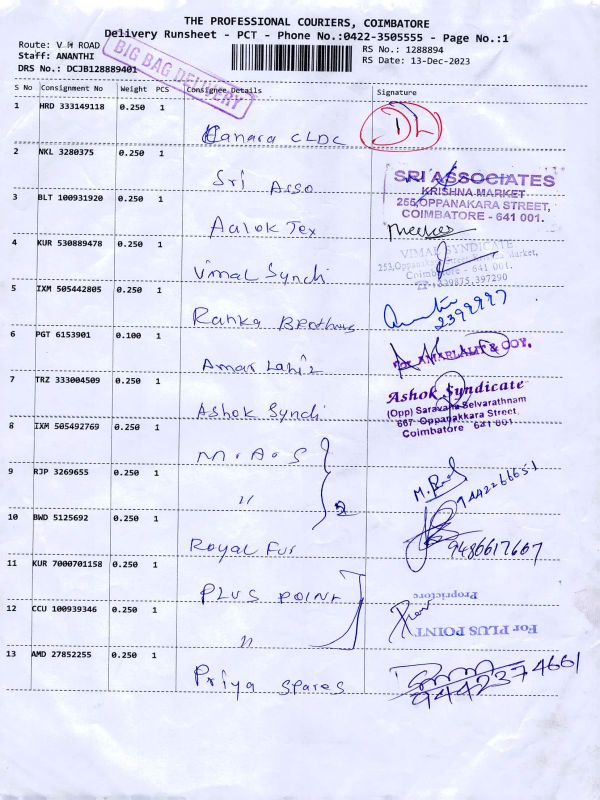 THE PROFESSIONAL COURIERS, COIMBATORE
Delivery Runsheet - PCT - Phone No.:0422-3505555 - Page No.:1
Route: V H ROAD
RS No.: 1288894
Staff: ANANTHI
RS Date: 13-Dec-2023
DRS No.: DCJB128889401
BIG BAG DELIVERY
S No Consignment No Weight PCS Consignee Details Signature
1 HRD 333149118 0.250 1 Canara CLDC DL
2 NKL 3280375 0.250 1 Sri Asso
SRI ASSOCIATES
KRISHNA MARKET
256/OPPANAKARA STREET,
COIMBATORE - 641 001.
3 BLT 100931920 0.250 1 Aalok Tex
4 KUR 530889478 0.250 1 Vimal Syndi
VIMAL SYNDICATE
Coimbatore - 641 001.
5 IXM 505442805 0.250 1 Ranka Brothers
6 PGT 6153901 0.100 1 Amar Lahiz
For AMARLALIT & COY.
7 TRZ 333004509 0.250 1 Ashok Syndi
Ashok Syndicate
(Opp) Saravana Selvarathnam
667 Oppanakkara Street,
Coimbatore 641 001
8 IXM 505492769 0.250 1 M.A.S
9 RJP 3269655 0.250 1 " 2
M.
9442266651
10 BWD 5125692 0.250 1 Royal Fur
9486617667
11 KUR 7000701158 0.250 1 PLUS POINT
12 CCU 100939346 0.250 1 "
For PLUS POINT
Proprietors
13 AMD 27852255 0.250 1 Priya Spares
9442374661